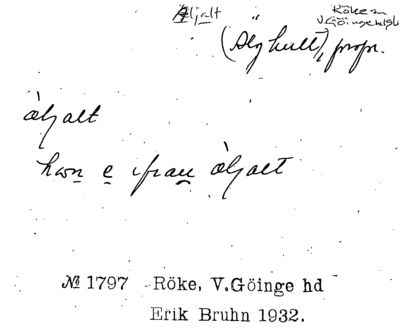 Äljalt
Röke sn
V. Göinge hd Sk
(Älghult), propr.
äljalt
hon e ifrau äljalt
№ 1797 Röke, V.Göinge hd
Erik Bruhn 1932.